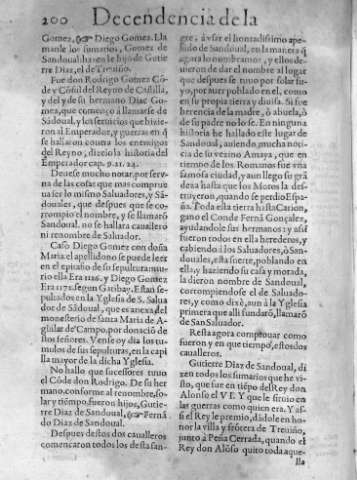 200 Decendencia de la
Gomez, Diego Gomez. Lla
manle los sumarios, Gomez de
Sandoual: hazenle hijo de Gutie
rre Diaz, el de Treuiño.
Fue don Rodrigo Gomez Cõ-
de y Cõsul del Reyno de Castilla,
y del y de su hermano Diac Go-
mez, que començo a llamarse de
Sãdoual, y los seruicios que hizie-
ron al Emperador, y guerras en q̃
se hallaron contra los enemigos
del Reyno, dizelo la historia del
Emperador cap. 9. 21. 24.
Deuese mucho notar, por ser vna
de las cosas que mas comprue
ua ser lo mismo Saluadores, y Sã-
douales, que despues que se co-
rrompio el nombre, y se llamarõ
Sandoual, no se hallara cauallero
ni renombre de Saluador.
Caso Diego Gomez con doña
Maria el apellido no se puede leer
en el epitafio de su sepultura: mu-
rio ella Era y Diego Gomez
Era segun Garibay. Estan se-
pultados en la Yglesia de S. Salua
dor de Sãdoual, que es anexa, del
monesterio de Santa Maria de A-
guilar de Campo, por donaciõ de
los señores. Vense oy dia los tu-
mulos de sus sepulturas, en la capi
lla mayor de la dicha Yglesia.
No hallo que sucessores tuuo
el Cõde don Rodrigo. De su her-
mano, conforme al renombre, so-
lar y tiẽmpo, fueron hijos, Gutie-
rre Diaz de Sandoual, Fernã
do Diaz de Sandoual.
Despues destos dos caualleros
comencaron todos los desta san-
gre, a vsar el honradissimo ape-
llido de Sandoual, en la manera q̃
agora lo nombramos, y ellos de-
uieron de dar el nombre al lugar
que despues se tuuo por solar su-
yo, por auer poblado en el, como
en su propia tierra y diuisa. Si fue
herencia de la madre, o abuela, o
de su padre no lo se. En ninguna
historia he hallado este lugar de
Sandoual, auiendo mucha noti-
cia de su vezino Amaya, que en
tiempo de los Romanos fue vna
famosa ciudad, y aun llego su grã
deza hasta que los Moros la des-
truyeron, quando se perdio Espa-
ña. Toda esta tierra hasta Carion,
gano el Conde Fernã Gonçales,
ayudandole sus hermanos: y assi
fueron todos en ella herederos, y
cabiendo a los Saluadores, o San-
douales, esta suerte, poblando en
ella, y haziendo su casa y morada,
la dieron nombre de Sandoual,
corrompiendose el de Saluado-
res, y como dixe, aun a la Yglesia
primera que alli fundarõ, llamarõ
de San Saluador.
Resta agora comprouar como
fueron y en que tiempo, estos dos
caualleros.
Gutierre Diaz de Sandoual, di
zen todos los sumarios que he vi-
sto, que fue en tiẽpo del Rey don
Alonso el VI. Y que le siruio en
las guerras como quien era. Y as-
si el Rey le premio, dãdole en ho-
nor la villa y frõtera de Treuiño,
junto à Peña Cerrada, quando el
Rey don Alõso quito toda aque-
lla